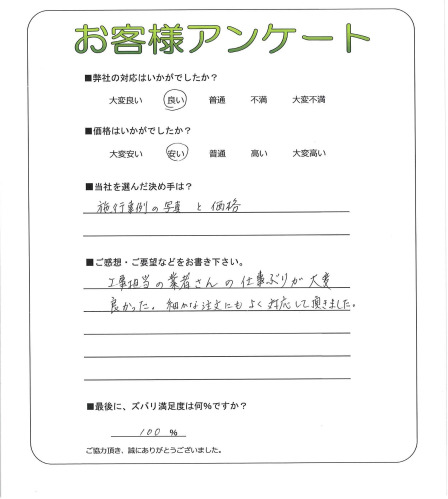 お客様アンケート
■弊社の対応はいかがでしたか？
大変良い 良い 普通 不満 大変不満
■価格はいかがでしたか？
大変安い 安い 普通 高い 大変高い
■当社を選んだ決め手は？
施行事例の写真と価格
■ご感想・ご要望などをお書き下さい。
工事担当の業者さんの仕事ぶりが大変
良かった。細かな注文にもよく対応して頂きました。
■最後に、ズバリ満足度は何%ですか？
100 %
ご協力頂き、誠にありがとうございました。